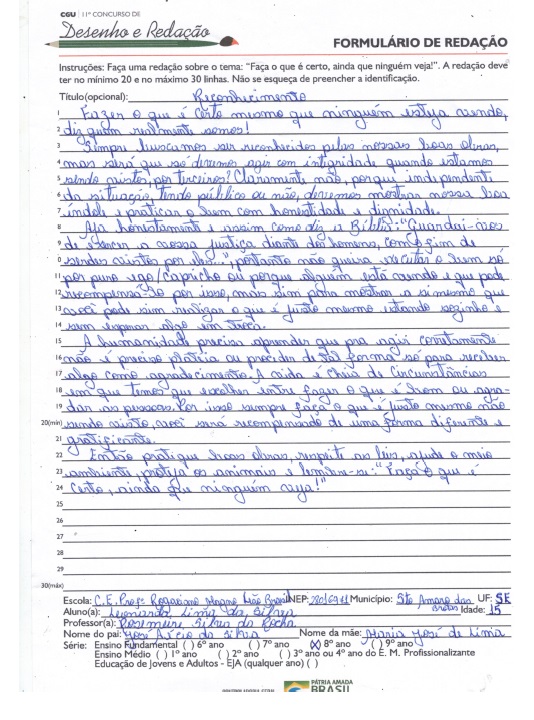 CGU | 11º CONCURSO DE
Desenho e Redação
FORMULÁRIO DE REDAÇÃO
Instruções: Faça uma redação sobre o tema: “Faça o que é certo, ainda que ninguém veja!”. A redação deve
ter no mínimo 20 e no máximo 30 linhas. Não se esqueça de preencher a identificação.
Título(opcional): Reconhecimento
1 Fazer o que é certo mesmo que ninguém esteja vendo,
2 diz quem realmente somos!
3 Sempre buscamos ser reconhecidos pelas nossas boas obras,
4 mas será que só devemos agir com integridade quando estamos
5 sendo vistos, por terceiros? Claramente não, porque independente
6 da situação, tendo público ou não, devemos mostrar nossa boa
7 índole e praticar o bem com honestidade e dignidade.
8 Aja honestamente e assim como diz a Bíblia: "Guardai-vos
9 de exercer a vossa justiça diante dos homens, com o fim de
10 serdes vistos por eles...", portanto não queira executar o bem só
11 por puro ego/capricho ou porque alguém está vendo e que pode
12 recompensá-lo por isso, mas sim para mostrar a si mesmo que
13 você pode sim realizar o que é justo mesmo estando sozinho e
14 sem esperar algo em troca.
15 A humanidade precisa aprender que pra agir corretamente
16 não é preciso platéia ou proceder de tal forma só para receber
17 algo como agradecimento. A vida é cheia de circunstâncias
18 em que temos que escolher entre fazer o que é bom ou agra-
19 dar as pessoas. Por isso sempre faça o que é justo mesmo não
20(mín) sendo visto, você será recompensado de uma forma diferente e
21 gratificante.
22 Então pratique boas obras, respeite as leis, ajude o meio
23 ambiente, proteja os animais e lembre-se: "Faça o que é
24 certo, ainda que ninguém veja!"
25
26
27
28
29
30(máx)
Escola: C.E. Profº Rogaciano Magno Leão Brasil INEP: Município: Sto Amaro das Brotas UF: SE
Aluno(a): Leonardo Lima da Silva Idade: 15
Professor(a): Rosemeire Silva da Rocha
Nome do pai: José Aécio da Silva Nome da mãe: Maria José de Lima
Série: Ensino Fundamental ( ) 6º ano ( ) 7º ano (X) 8º ano ( ) 9º ano
Ensino Médio ( ) 1º ano ( ) 2º ano ( ) 3º ano ou 4º ano do E. M. Profissionalizante
Educação de Jovens e Adultos - EJA (qualquer ano) ( )
PÁTRIA AMADA
BRASIL